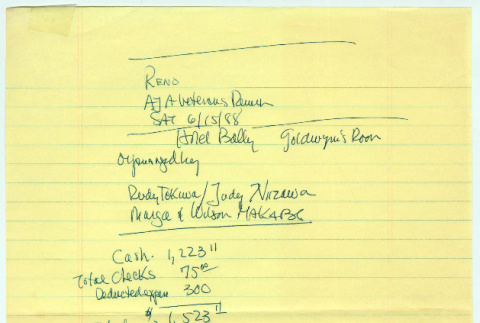 Reno
AJA Veterans Reunion
SAT 6/15/88
Hotel Bally Goldwyn's Room
Organized by
Rudy Tokiwa / Judy Niizawa
Marge & Wilson MAKABE
Cash. 1,223 11
Total Checks 75 00
Deducted expen 300
$ 1,523 11